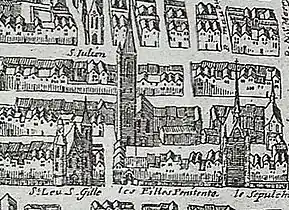 S. Julien
St. Leu S. Gille
les Filles Penitents
le Sepulchr